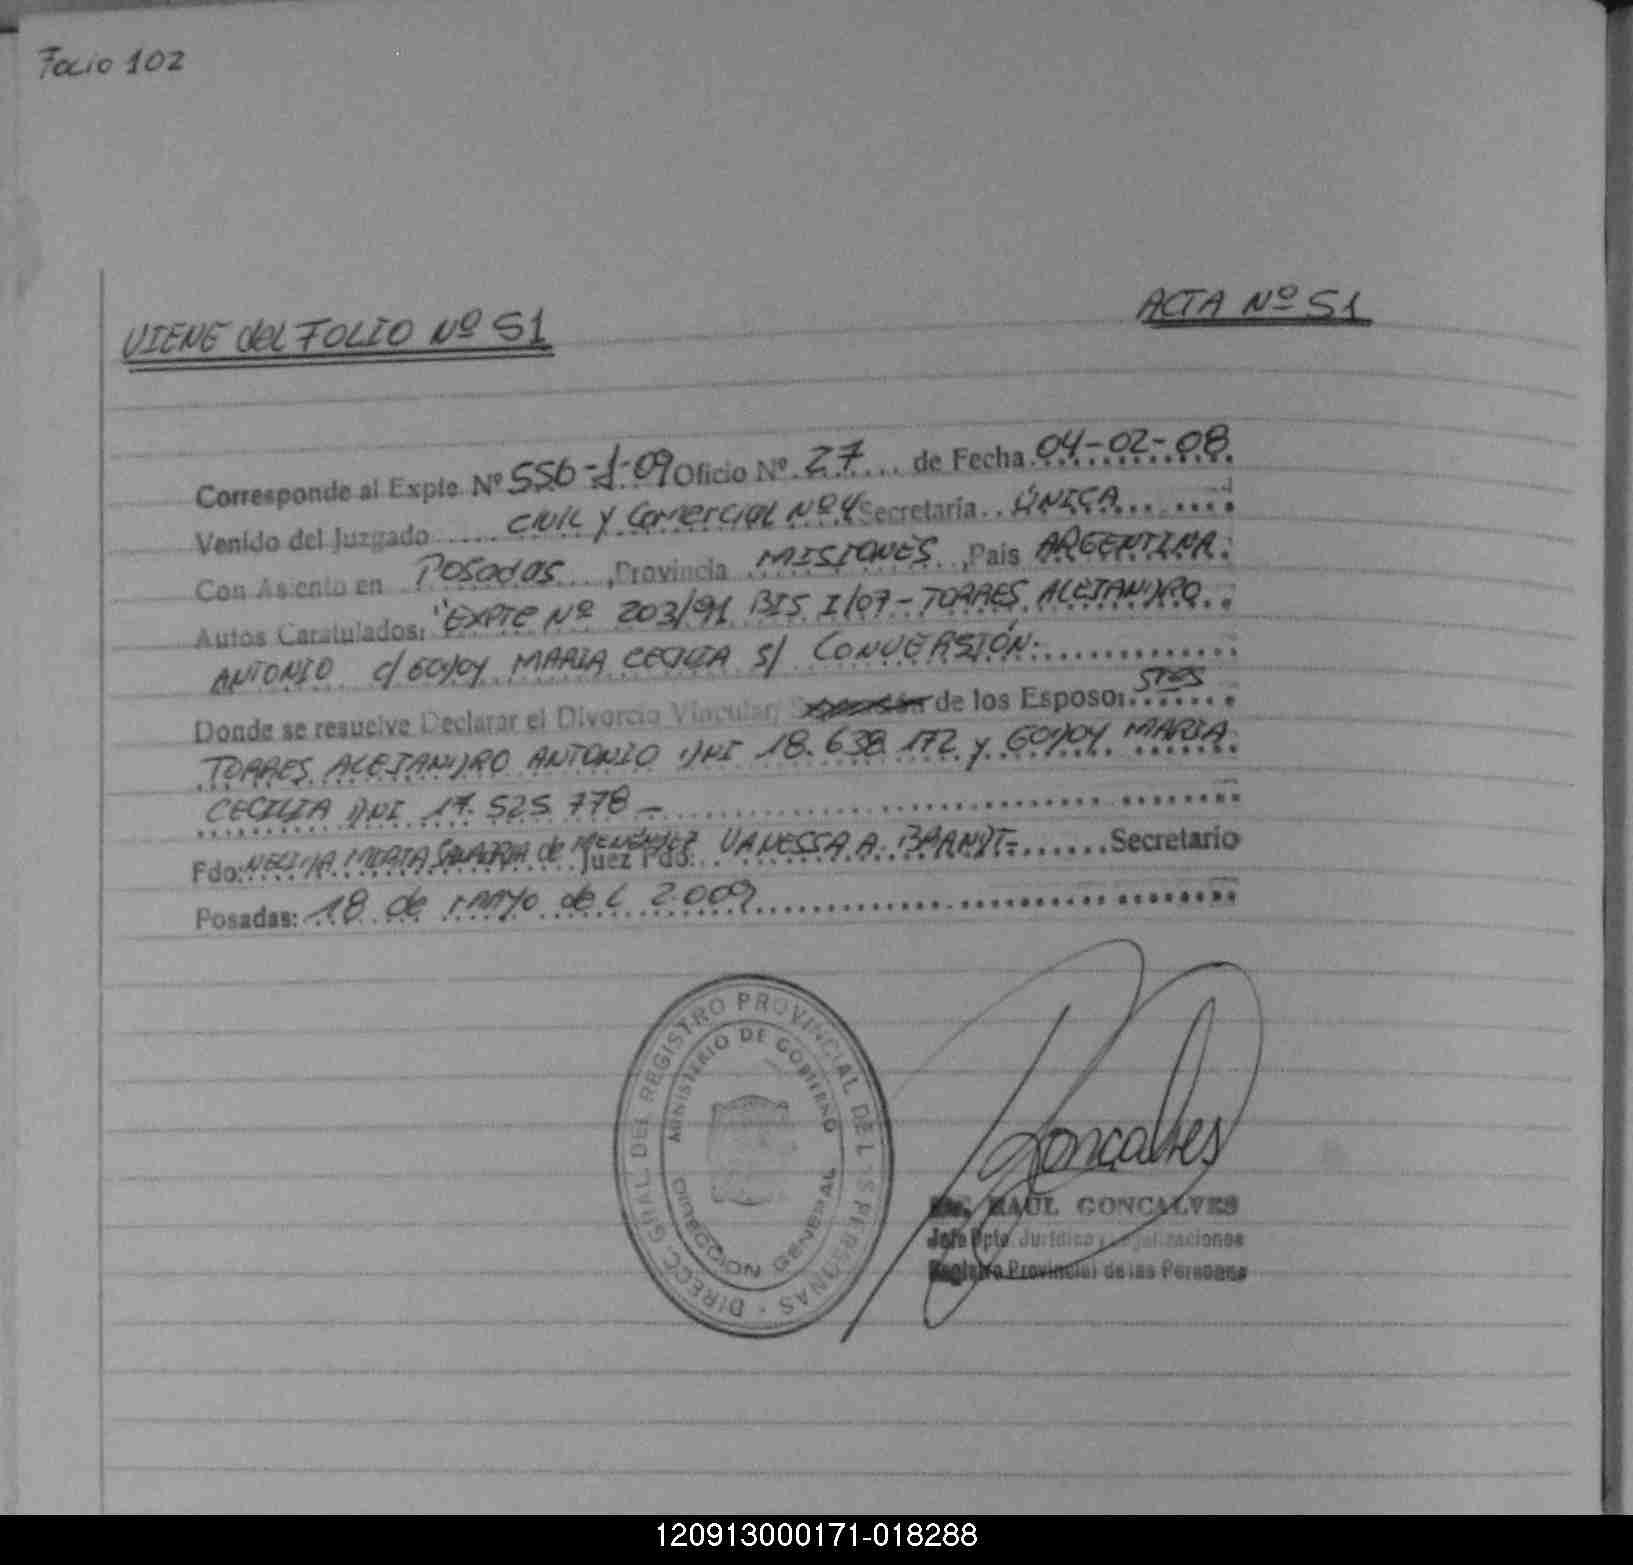 Folio 102
ACTA Nº 51
VIENE del FOLIO Nº 51
Corresponde al Expte. Nº 556-J-09 Oficio Nº 27 de Fecha 04-02-08
Venido del Juzgado CIVIL y Comercial Nº 4 Secretaria ÚNICA
Con Asiento en Posadas, Provincia MISIONES, País ARGENTINA.
Autos Caratulados: "EXPTE Nº 203/91 BIS I/07 - TORRES ALEJANDRO
ANTONIO c/ GODOY MARIA CECILIA S/ CONVERSIÓN.
Donde se resuelve Declarar el Divorcio Vincular, de los Esposos Sres
TORRES ALEJANDRO ANTONIO DNI 18.638.172 y GODOY MARIA
CECILIA DNI 17.525.778 -
Fdo: MIRTA de MENENDEZ Juez Fdo: VANESSA A. BRANDT - Secretario
Posadas: 18 de mayo del 2.009
DIRECC. GRAL. DEL REGISTRO PROVINCIAL DE LAS PERSONAS
MINISTERIO DE GOBIERNO
DIRECCION GENERAL
Goncalves
RAUL GONCALVES
Jefe Dpto. Jurídico y Legalizaciones
Registro Provincial de las Personas
120913000171-018288